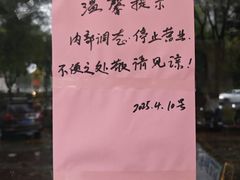 温馨提示
内部调态.停止营业.
不便之处敬请见谅！
2025.4.10号